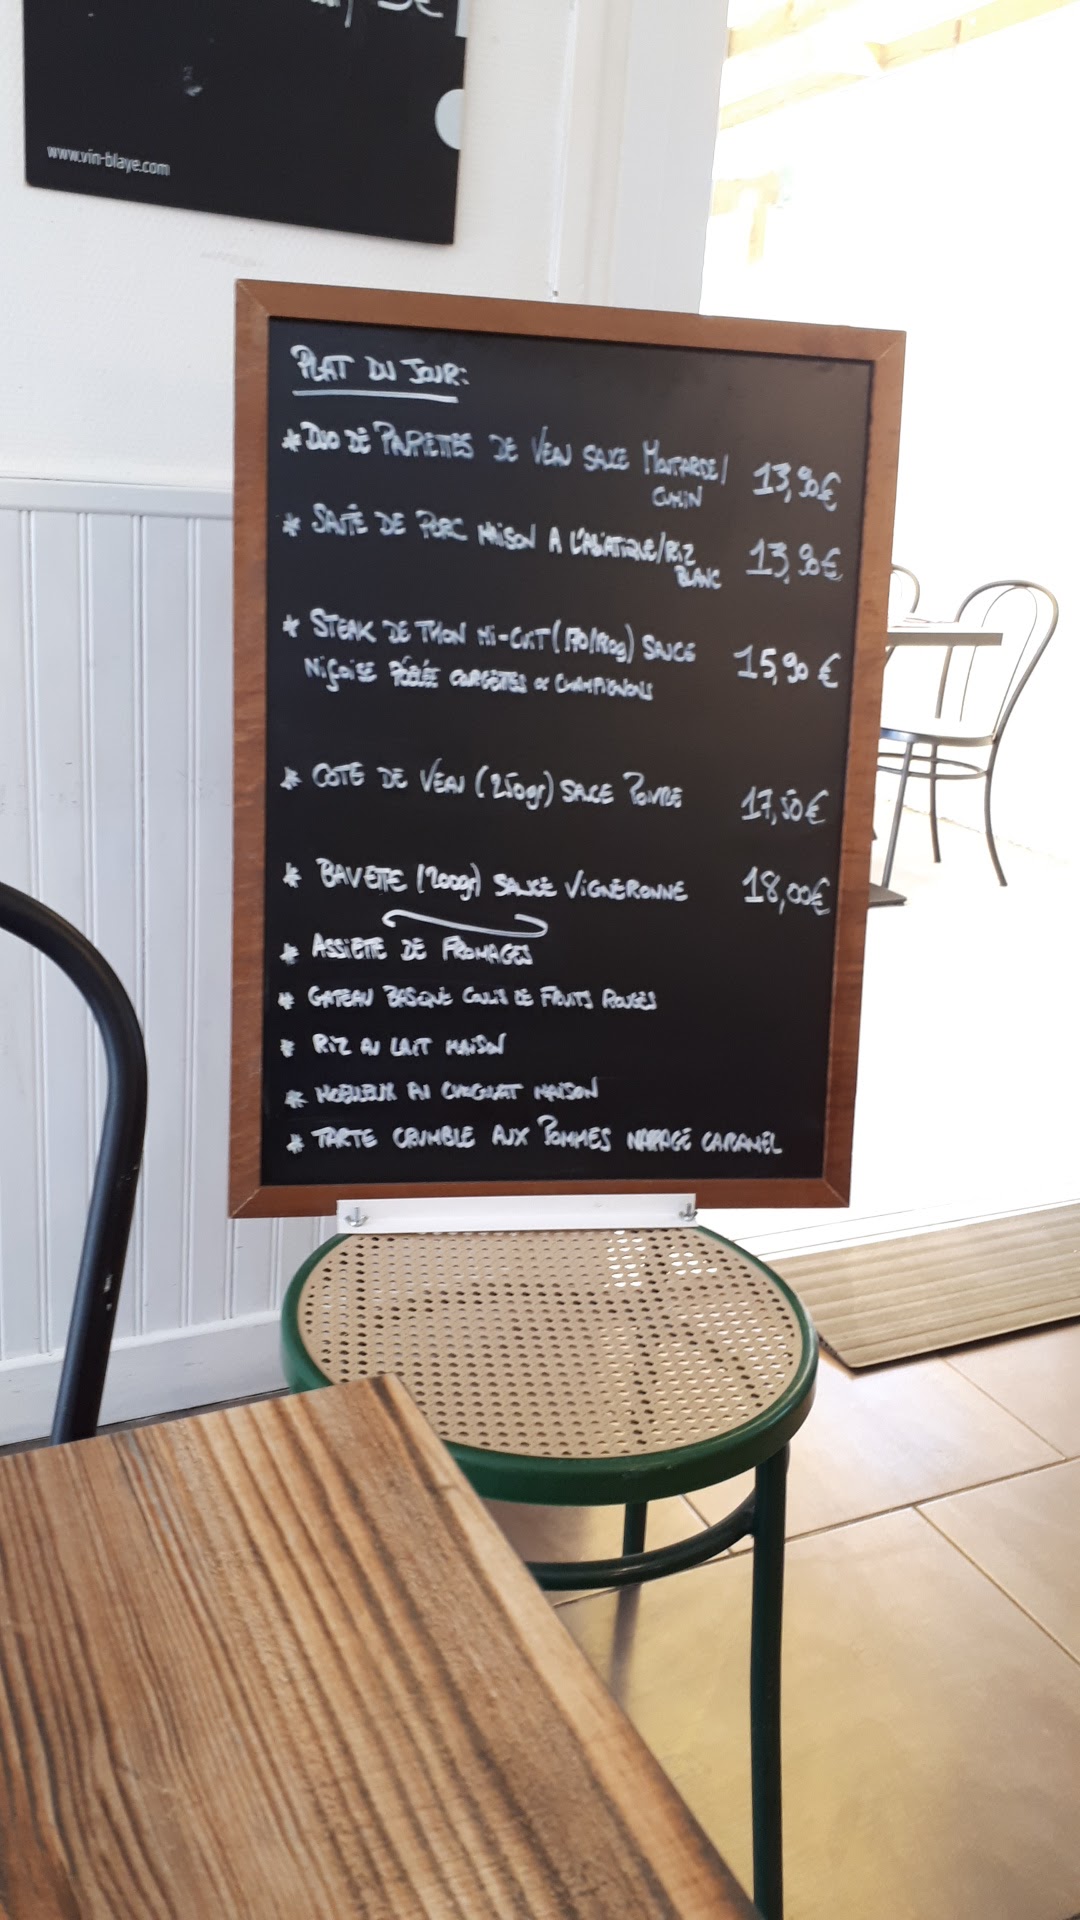 5€
www.vin-blaye.com
PLAT DU JOUR:
* DUO DE PAUPIETTES DE VEAU SAUCE MOUTARDE/ 13,90€
CUMIN
* SAUTÉ DE PORC MAISON A L'ASIATIQUE/RIZ 13,90€
BLANC
* STEAK DE THON MI-CUIT (170/180g) SAUCE 15,90 €
NIÇOISE POÊLÉE COURGETTES & CHAMPIGNONS
* COTE DE VEAU (250gr) SAUCE POIVRE 17,50€
* BAVETTE (200gr) SAUCE VIGNERONNE 18,00€
* ASSIETTE DE FROMAGES
* GATEAU BASQUE COULIS DE FRUITS ROUGES
* RIZ AU LAIT MAISON
* MOELLEUX AU CHOCOLAT MAISON
* TARTE CRUMBLE AUX POMMES NAPPAGE CARAMEL